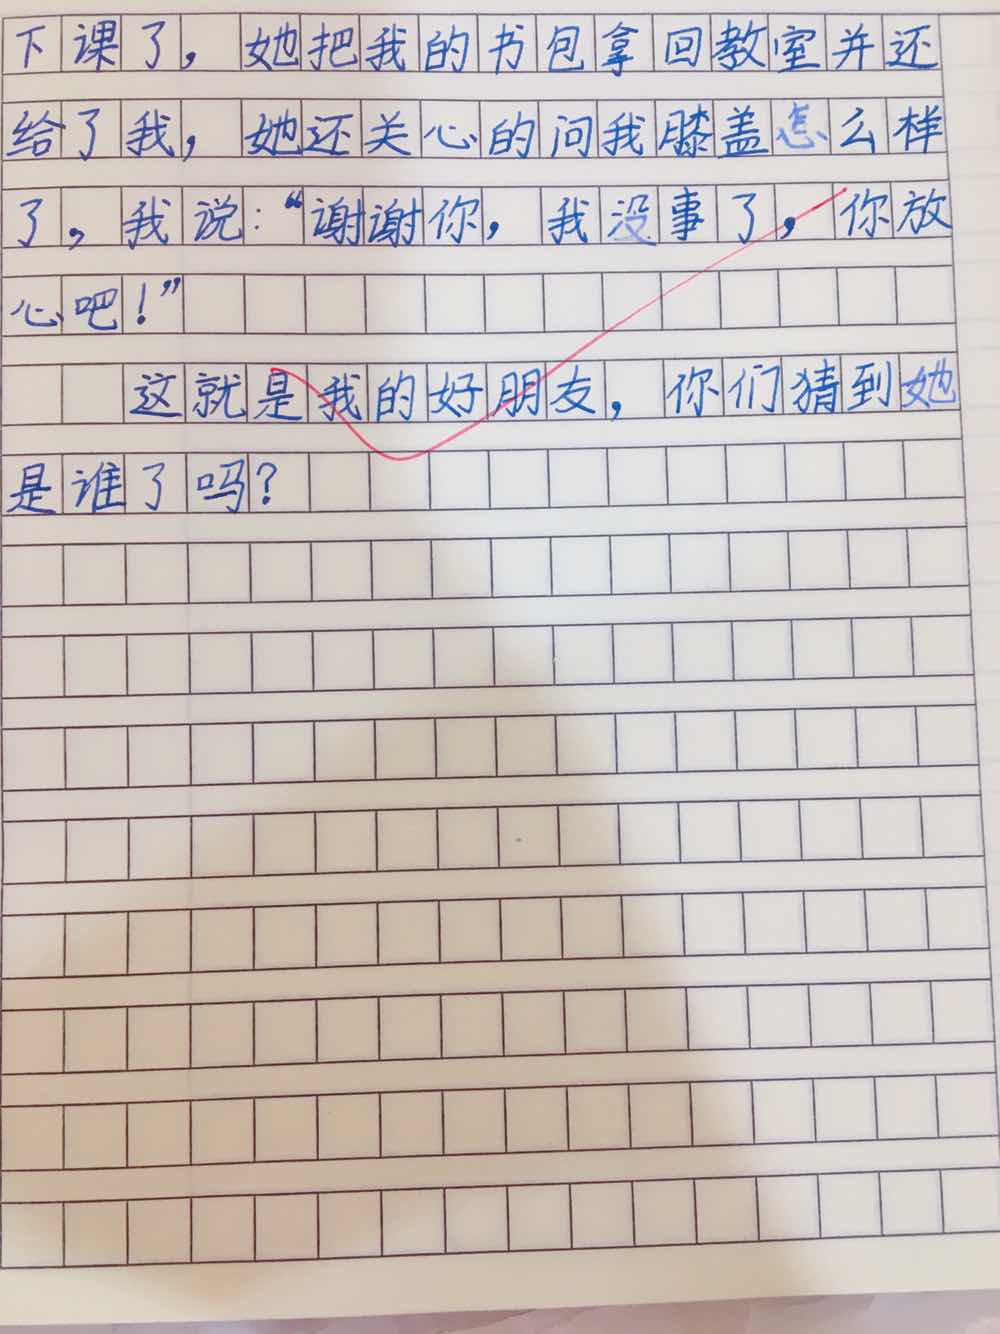 下课了，她把我的书包拿回教室并还
给了我，她还关心的问我膝盖怎么样
了，我说：“谢谢你，我没事了，你放
心吧！”
这就是我的好朋友，你们猜到她
是谁了吗？